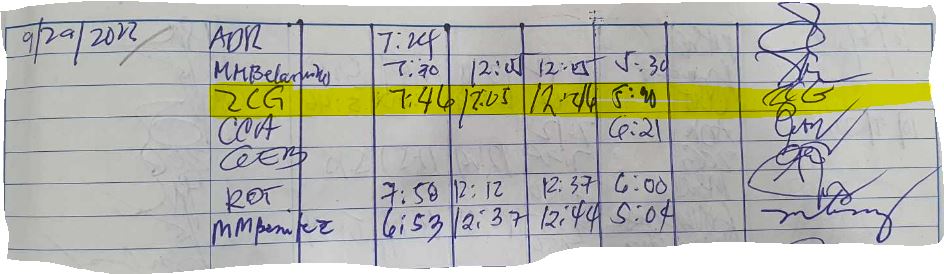 9/29/2022 ADR 7:24
MMBelarmino 7:30 12:05 12:05 5:30
ZCG 7:46 12:05 12:26 5:90 ZCG
CCA 6:21
GEB
ROT 7:58 12:12 12:37 6:00
6:53 12:37 12:44 5:04